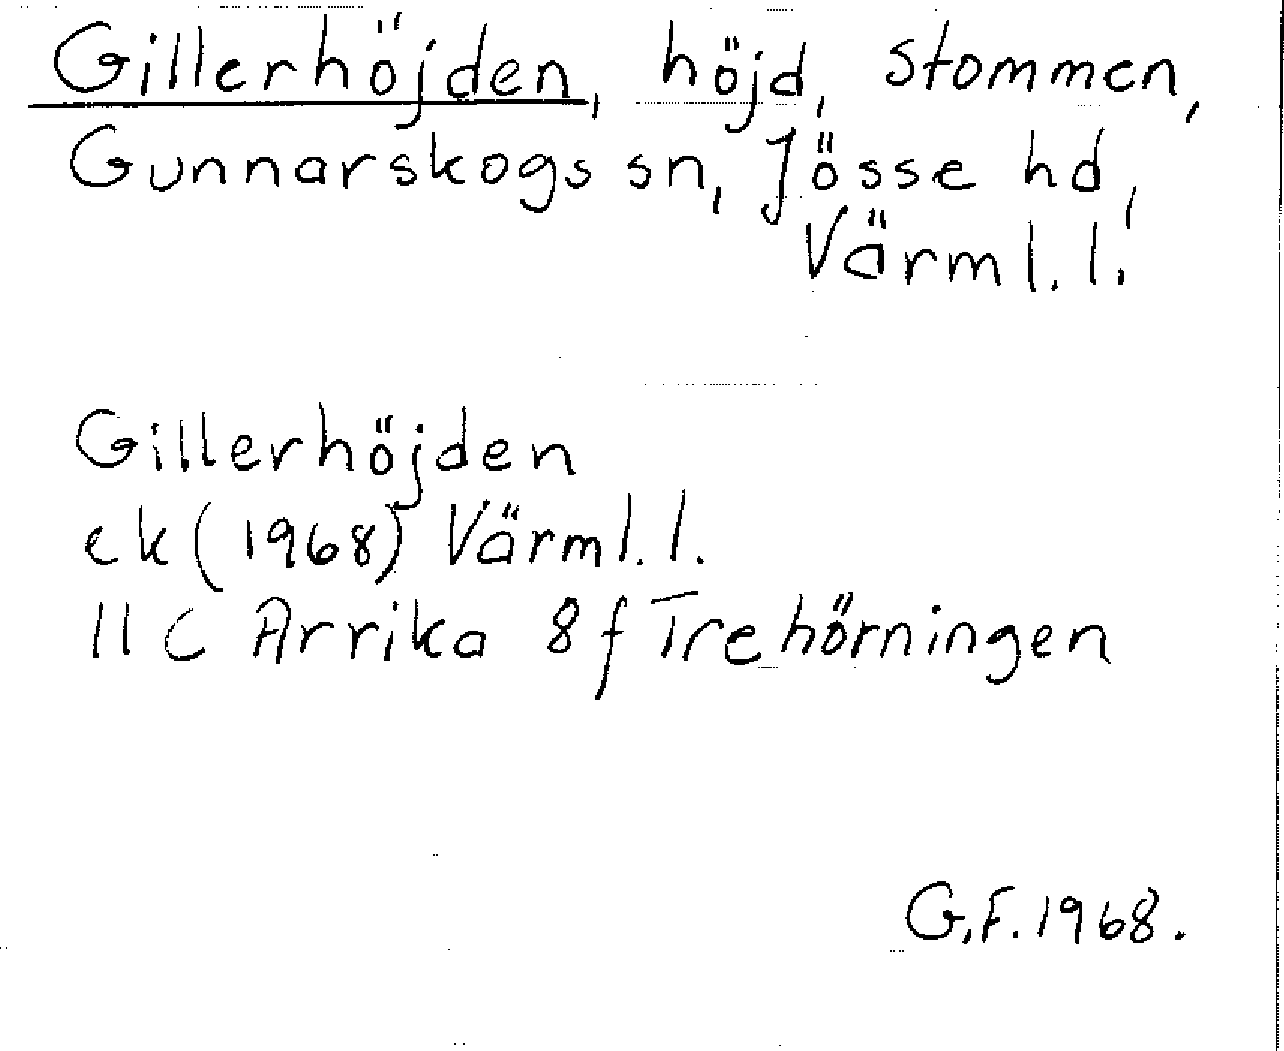 Gillerhöjden, höjd, stommen,
Gunnarskogs sn, Jösse hd,
Värml. l.
Gillerhöjden
ek (1968) Värml. l.
11 C Arrika 8 f Trehörningen
G.F. 1968.